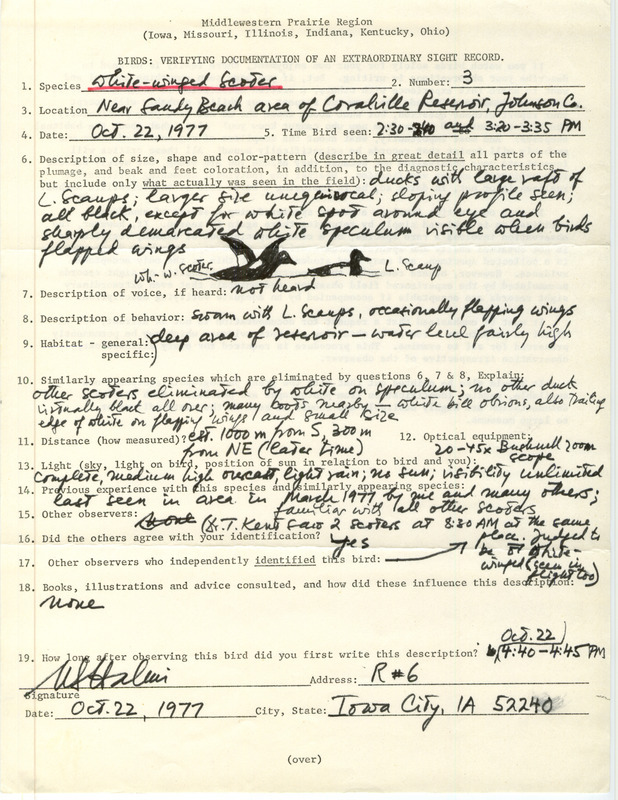 Middlewestern Prairie Region
(Iowa, Missouri, Illinois, Indiana, Kentucky, Ohio)
BIRDS: VERIFYING DOCUMENTATION OF AN EXTRAORDINARY SIGHT RECORD.
1. Species White-winged Scoter 2. Number: 3
3. Location Near Sandy Beach area of Coralville Reservoir, Johnson Co.
4. Date: Oct. 22, 1977 5. Time Bird seen: 2:30- and 3:20-3:35 PM
6. Description of size, shape and color-pattern (describe in great detail all parts of the
plumage, and beak and feet coloration, in addition, to the diagnostic characteristics,
but include only what actually was seen in the field): ducks with large raft of
L. Scaups; larger size unequivocal; sloping profile seen;
all black, except for white spot around eye and
sharply demarcated white speculum visible when birds
flapped wings
Wh.-w. Scoter L. Scaup
7. Description of voice, if heard: not heard
8. Description of behavior: swam with L. Scaups, occasionally flapping wings
9. Habitat - general: deep area of reservoir - water level fairly high
specific:
10. Similarly appearing species which are eliminated by questions 6, 7 & 8, Explain:
other scoters eliminated by white on speculum; no other duck
virtually black all over; many coots nearby - white bill obvious, also trailing
edge of white on flapping wings and small size
11. Distance (how measured)? est. 1000 m from S, 300 m
from NE (later time)
12. Optical equipment: 20-45x Bushnell zoom
scope
13. Light (sky, light on bird, position of sun in relation to bird and you):
complete, medium high overcast, light rain; no sun; visibility unlimited
14. Previous experience with this species and similarly appearing species:
last seen in area in March 1977 by me and many others;
familiar with all other scoters
15. Other observers: (T. Kent saw 2 scoters at 8:30 AM at the same
place. Judged to
be white-
winged (seen in
flight too)
16. Did the others agree with your identification? Yes
17. Other observers who independently identified this bird:
18. Books, illustrations and advice consulted, and how did these influence this description:
none
19. How long after observing this bird did you first write this description? Oct. 22
4:40-4:45 PM
Address: R#6
Signature
Date: Oct. 22, 1977 City, State: Iowa City, IA 52240
(over)